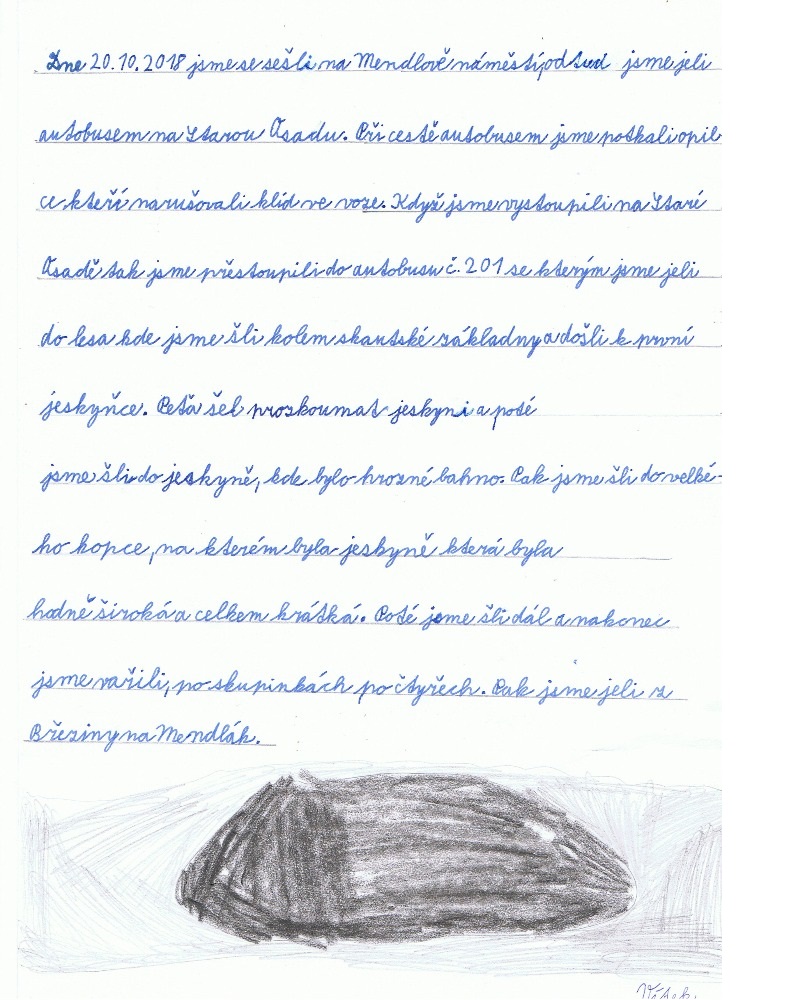 Dne 20.10.2018 jsme se sešli na Mendlově náměstí, od tud jsme jeli
autobusem na Starou Osadu. Při cestě autobusem jsme potkali opil
ce kteří narušovali klid ve voze. Když jsme vystoupili na Staré
Osadě tak jsme přestoupili do autobusu č. 201 se kterým jsme jeli
do lesa kde jsme šli kolem skautské základny a došli k první
jeskyňce. Peťa šel prozkoumat jeskyni a poté
jsme šli do jeskyně, kde bylo hrozné bahno. Pak jsme šli do velké-
ho kopce, na kterém byla jeskyně která byla
hodně široká a celkem krátká. Poté jsme šli dál a nakonec
jsme vařili, po skupinkách po čtyřech. Pak jsme jeli z
Březiny na Mendlák.